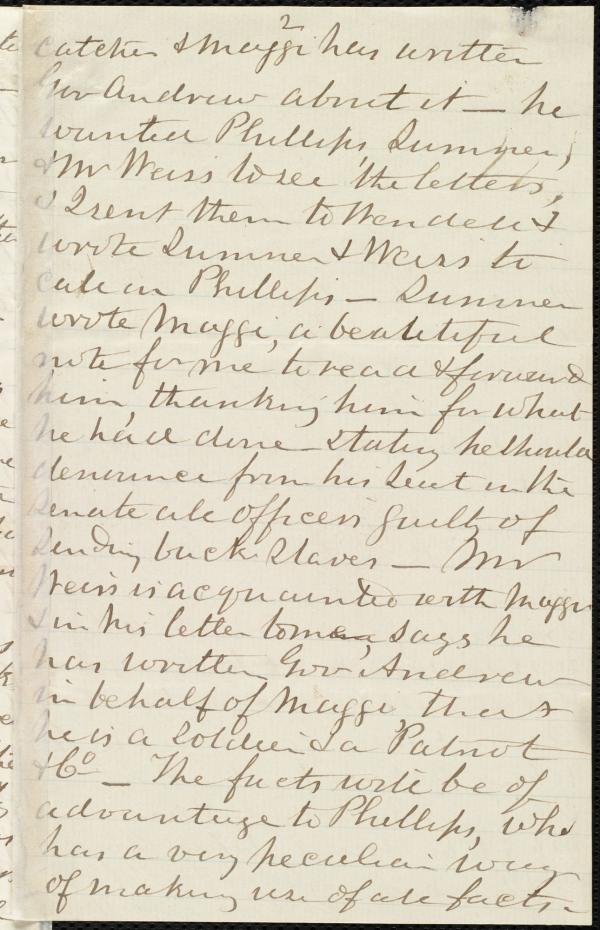 2
catcher & Maggi has written
Gov Andrew about it — he
wanted Phillips, Sumner,
& Mr Weiss to see the letters,
& I sent them to Wendell &
wrote Sumner & Weiss to
call on Phillips — Sumner
wrote Maggi, a beautiful
note for me to read & forward
him, thanking him for what
he had done — stating he should
denounce from his Seat in the
Senate all officers guilty of
Sending back Slaves — Mr
Weiss is acquainted with Maggi
& in his letter to me, says he
has written Gov. Andrew
in behalf of Maggi, that
he is a Soldier & a Patriot
&Co — The facts will be of
advantage to Phillips, who
has a very peculiar way
of making use of all facts —